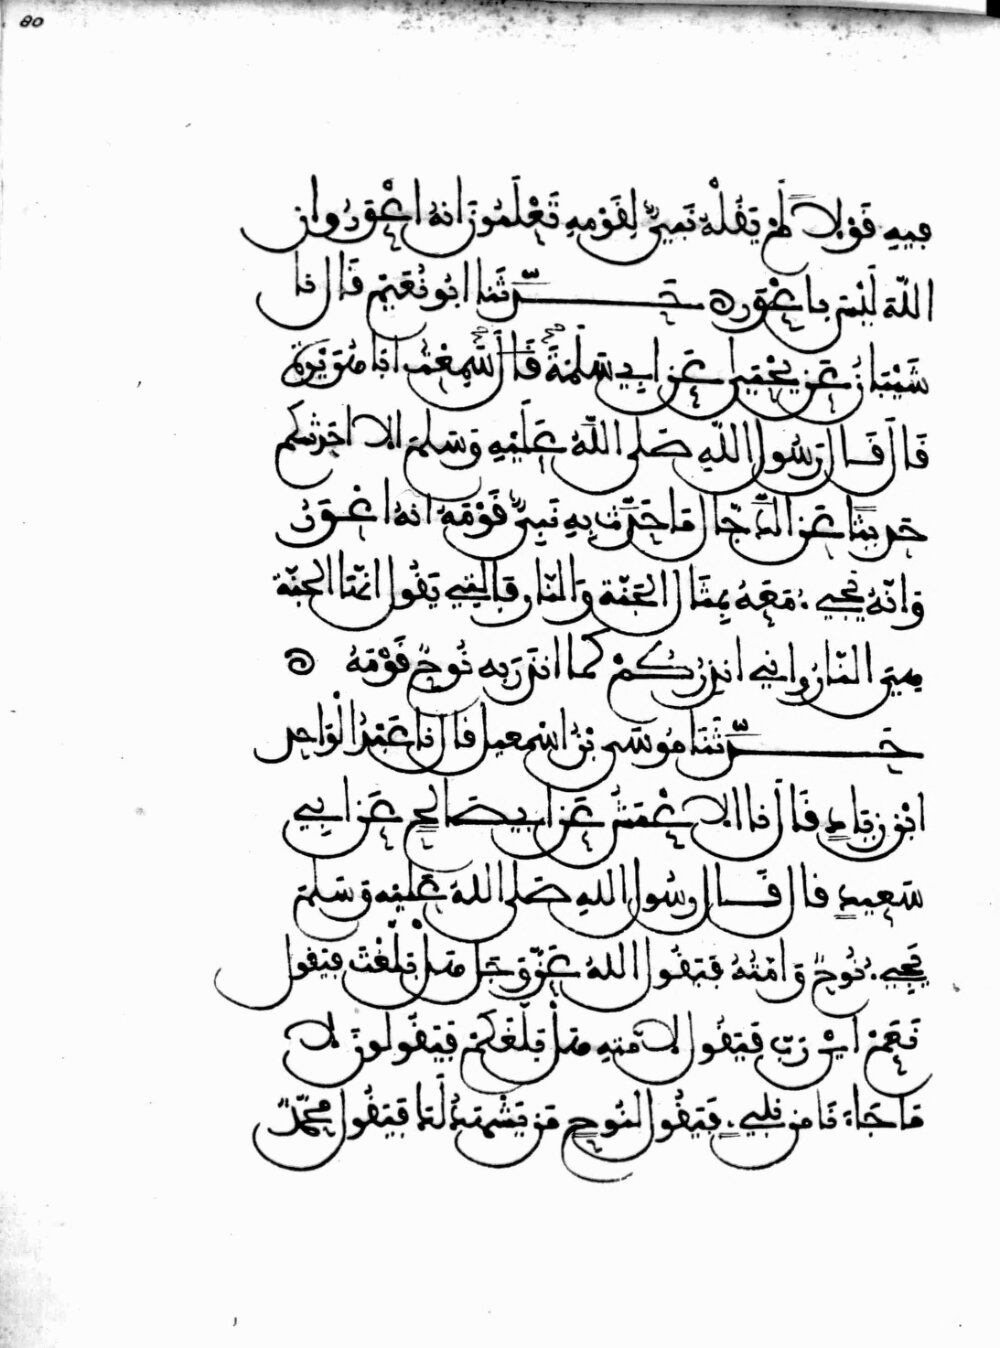 80
فيه قولا لم يقله نبيٌّ لقومه تَعْلَمُونَ انهُ اعْوَرُ وان
اللهَ لَيْسَ باعْوَرَ حَدَّثَنا ابو نُعَيْم قَال نا
شَيْبَانُ عَن يحْيى عَن ابي سَلَمَةَ قَال سَمِعْتُ ابا هُرَيْرَةَ
قَالَ قَال رَسُول اللهِ صَلى اللهُ عَلَيْهِ وَسَلم الا احَدثكم
حَديثًا عَن الدَّجّال مَا حَدَّث بِهِ نَبِيٌّ قَوْمَهُ انهُ اعْوَرُ
وَانّهُ يَجِيءُ مَعَهُ بِمِثَال الجَنّةِ وَالنّار فالتي يَقُول انّهَا الجنّة
هِيَ النّارُ واني انذِرُكُمْ كما انذَرَ بِه نُوحٌ قَوْمَهُ
حَدَّثَنَا مُوسَى بْنُ اسْمعيل قال نا عَبْدُ الْوَاحِدِ
ابْنُ زِيَادٍ قَالَ نا الاعْمَشُ عَن ابي صَالِحٍ عَن ابِي
سَعِيدٍ قال قَال رسُول اللهِ صَلى اللهُ عَلَيْه وَسَلم
يَجِيءُ نُوحٌ وَامّتُهُ فيَقُولُ اللهُ عَزّ وَجَلّ هَلْ بَلّغْتَ فيَقول
نَعَمْ ايْ رَبّ فَيَقُول لامّتِهِ هَلْ بَلّغَكمْ فَيَقُولُونَ لا
مَا جَاءَنَا مِن نَبِيٍّ فَيَقُول لنُوحٍ مَن يَشْهَدُ لَكَ فَيَقُول مُحَمّدٌ